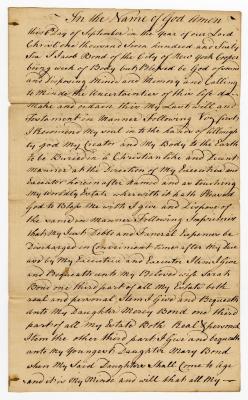 In the Name of God Amen
this Day of September in the Year of our Lord
Christ one thousand Seven hundred and Sixty
Six I Jacob Bond of the City of New York
being weak of Body but Blessed be God of sound
and Disposing Minde and Memory and Calling
to Minde the Uncertainties of this life do
Make and ordain this My Last will and
Testament in Manner Following Viz first
I Recomend My Soul in to the hands of Allmigh
ty god My Creator and My Body to the Earth
to be Buried in a Christian like and decent
manner at the Direction of My Executrix and
Executor hereinafter Named and as touching
My Worldly Estate where with it hath Pleased
God to Bless Me with I give and Dispose of
the same in manner Following Imprimis
that My Just Debts and Funeral Expences be
Discharged in Convenient time after My Dece
ase by My Executrix and Executor Item I give
and Bequeath unto My Beloved wife Sarah
Bond one third part of all My Estate both
real and personal Item I Give and Bequeath
unto My Daughter Mercy Bond one third
part of all My Estate Both Real & personal
Item the other third part I give and bequeath
unto My Youngest Daughter Mary Bond
when My Said Daughters Shall Come to Age
and it is My Minde and will that all My